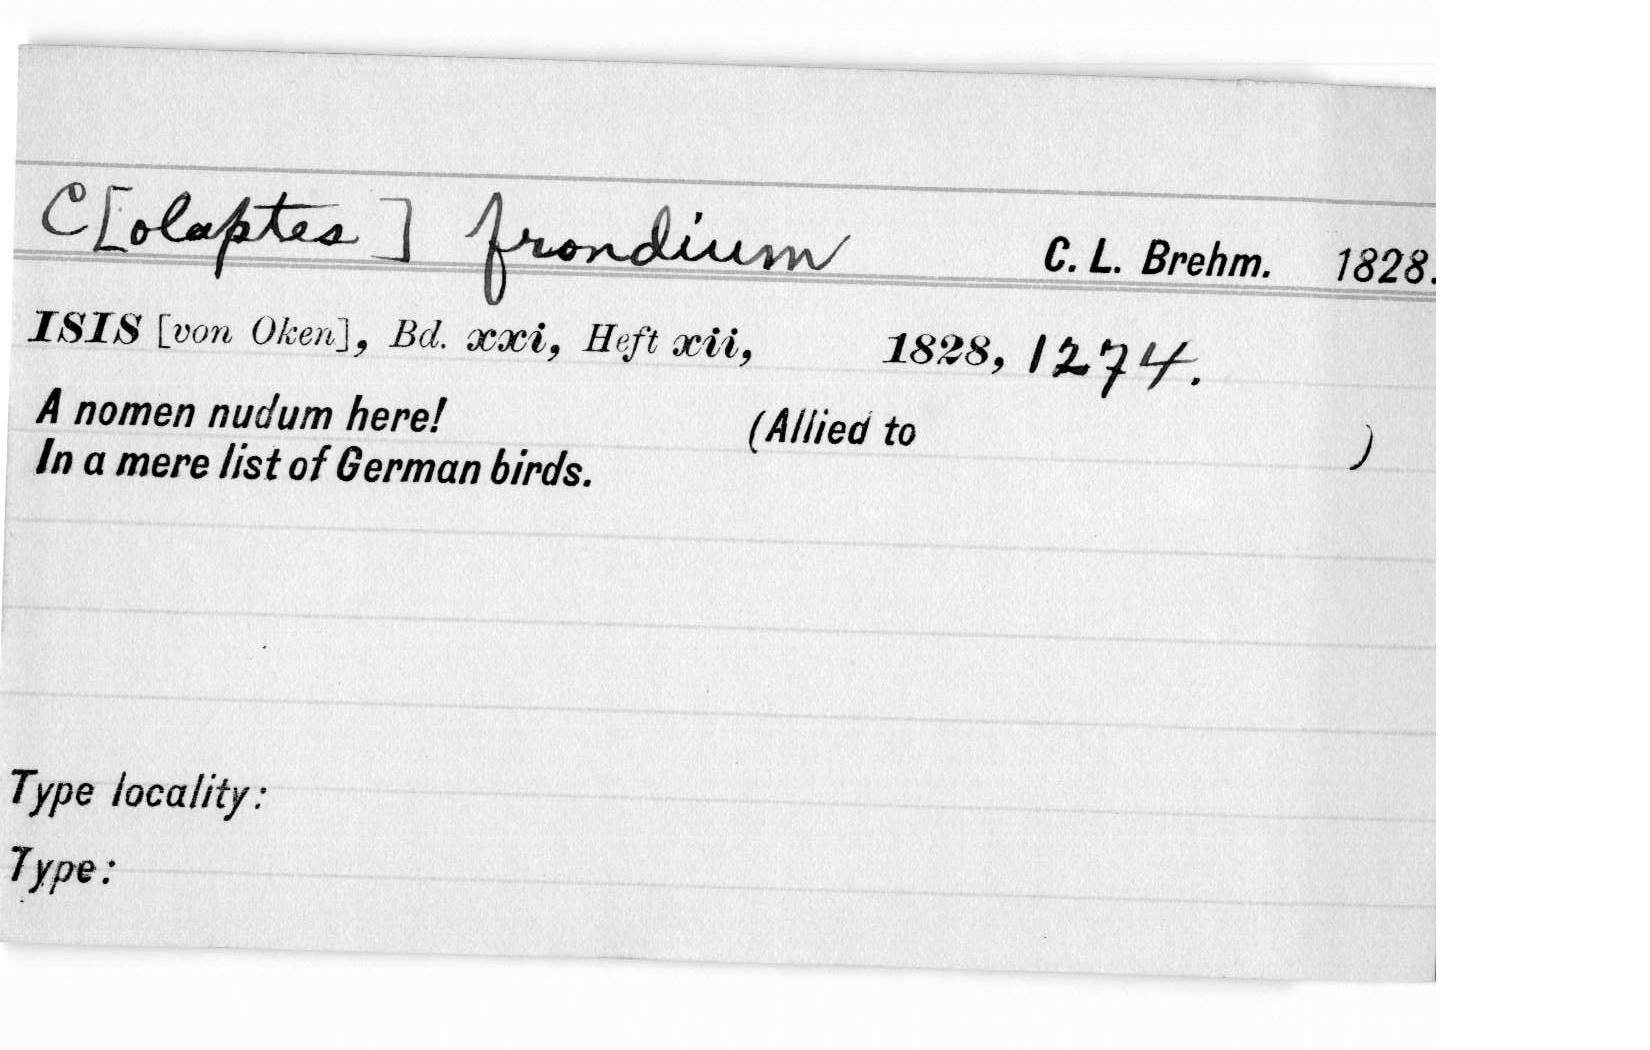 C[olaptes] frondium C. L. Brehm. 1828.
ISIS [von Oken], Bd. xxi, Heft xii, 1828, 1274.
A nomen nudum here! (Allied to )
In a mere list of German birds.
Type locality:
Type: